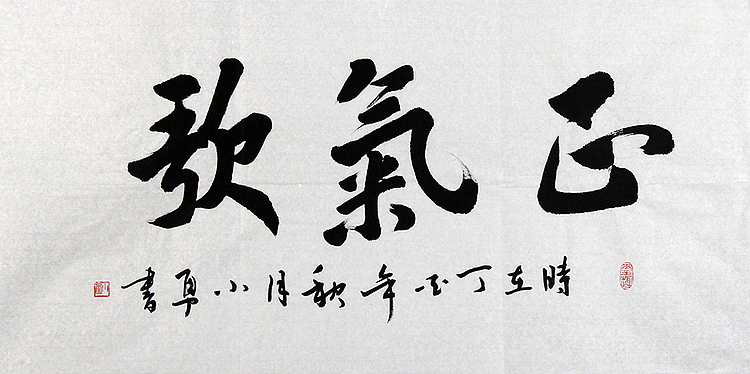 正氣歌
時在丁亥年秋月小勇書